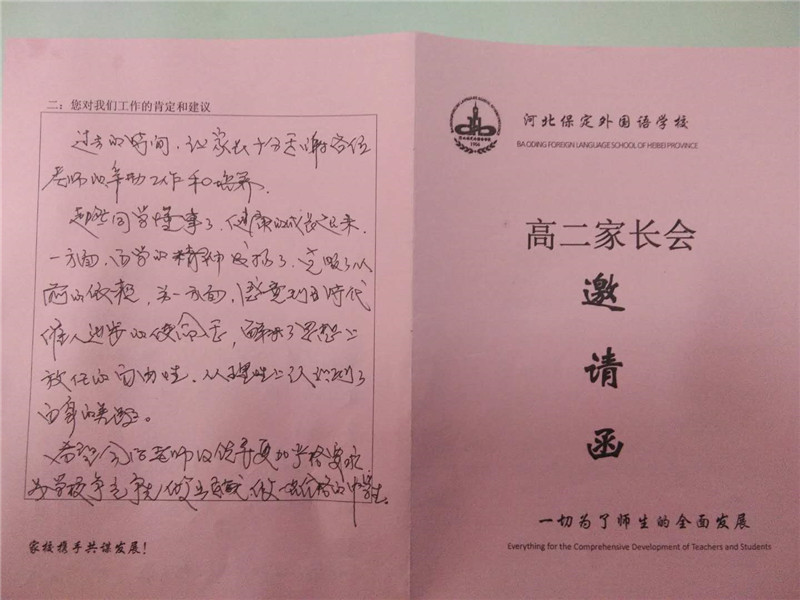 二：您对我们工作的肯定和建议
过去的时间，让家长十分感谢各位
老师的辛勤工作和培养。
超然同学懂事了，健康的成长起来，
一方面，自学的精神发扬了，克服了以
前的依赖，另一方面，感觉到了时代
催人进步的使命感，解决了思想上
放任的自由性，从理性上认识到了
自身的差距。
希望全体老师及领导更加严格要求
为学校争光争先做出贡献 做 合格的中学生。
家校携手共谋发展！
河北保定外国语学校
BAODING FOREIGN LANGUAGE SCHOOL OF HEBEI PROVINCE
高二家长会
邀
请
函
一切为了师生的全面发展
Everything for the Comprehensive Development of Teachers and Students